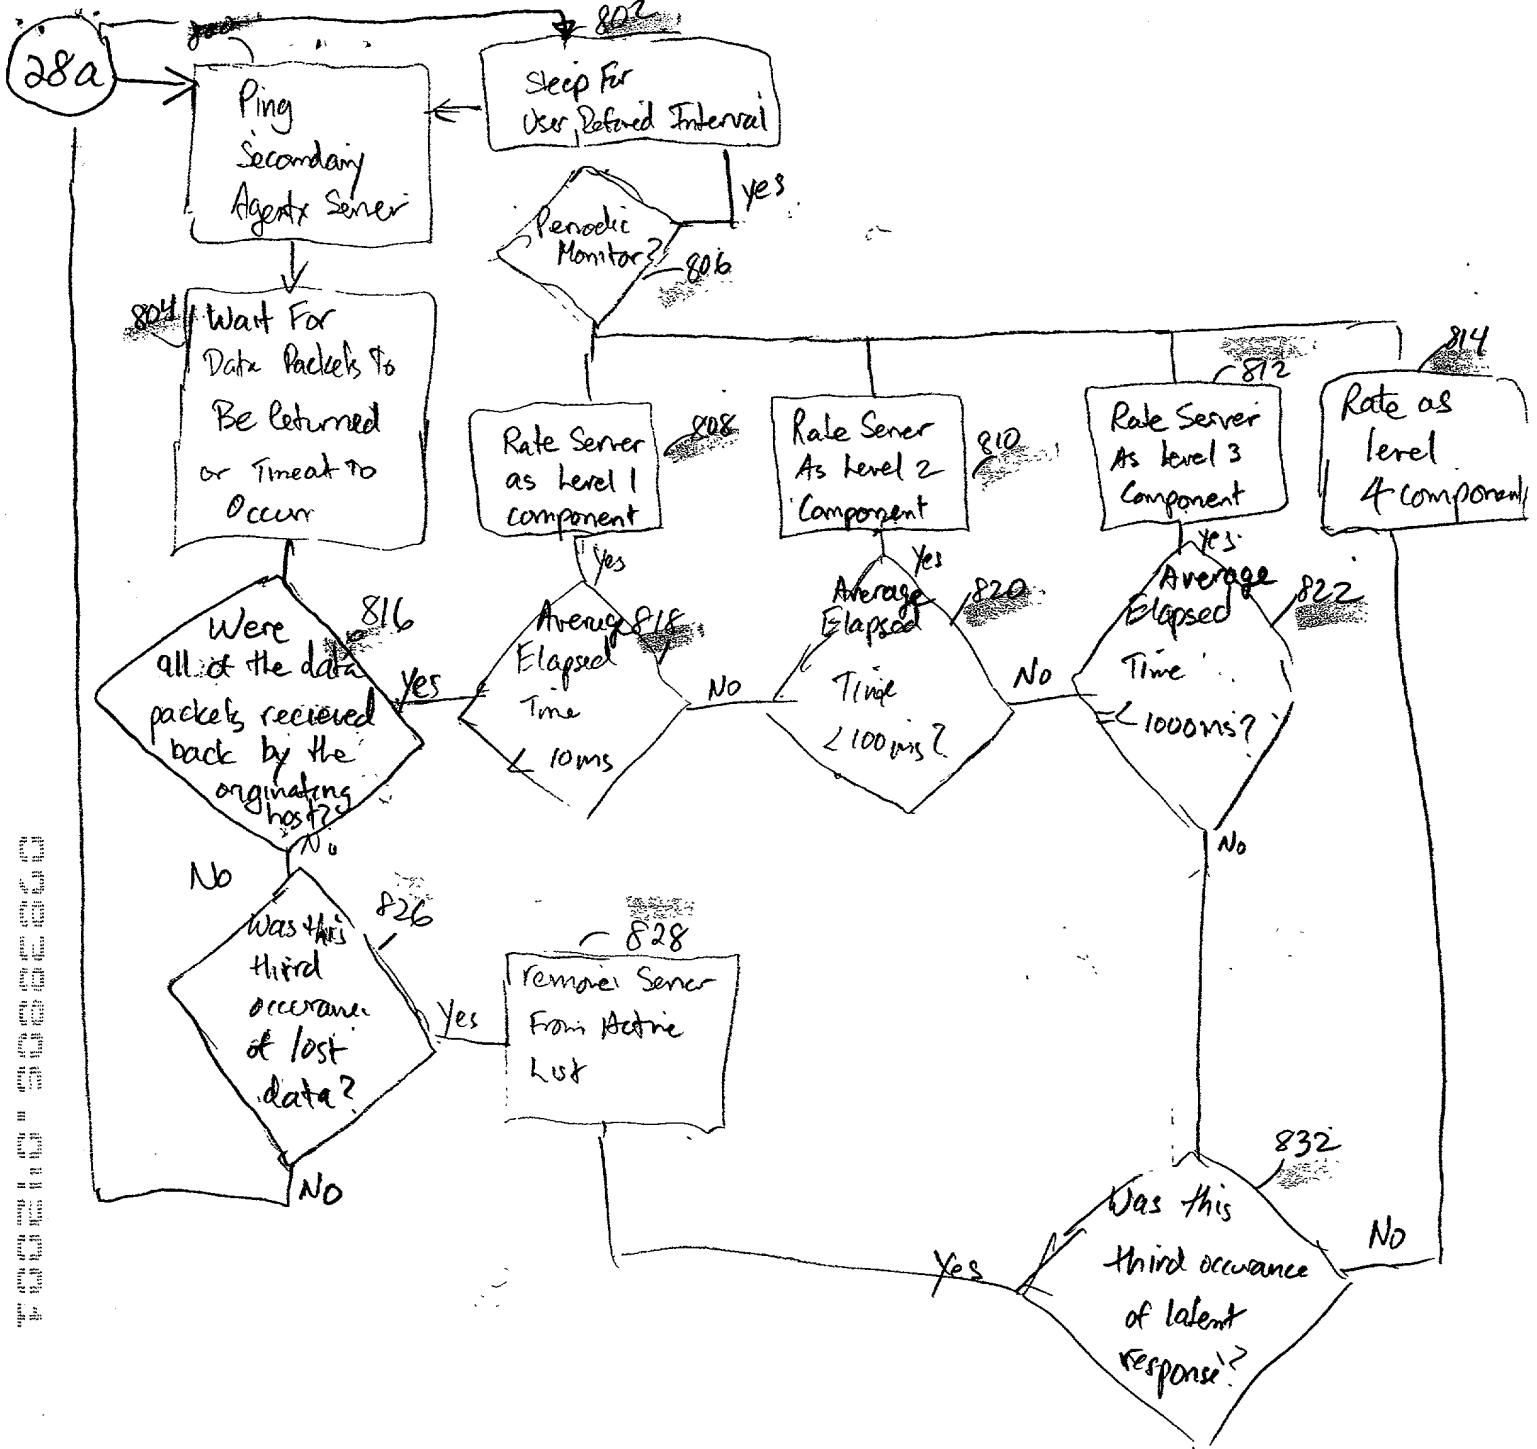 28a
802
Sleep For
User Defined Interval
Ping
Secondary
Agentx Server
yes
Periodic
Monitor?
806
804
Wait For
Data Packets To
Be Returned
or Timeout To
Occur
808
Rate Server
as Level 1
component
810
Rate Server
As Level 2
Component
812
Rate Server
As Level 3
Component
814
Rate as
level
4 component
Yes
Yes
Yes
816
Were
all of the data
packets recieved
back by the
orginating
host?
Yes
818
Average
Elapsed
Time
< 10ms
No
820
Average
Elapsed
Time
< 100ms?
No
822
Average
Elapsed
Time
=< 1000ms?
No
No
No
826
Was this
third
occurance
of lost
data?
Yes
No
828
remove Server
From Active
List
832
Was this
third occurance
of latent
response?
Yes
No